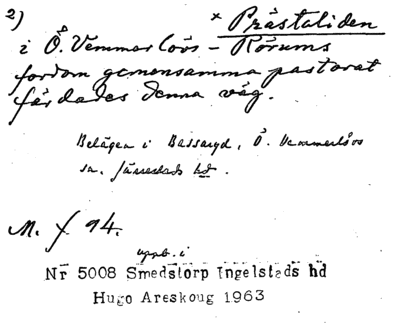 2)
× Prästaliden
i Ö. Vemmerlövs - Rörums
fordom gemensamma pastorat
färdades denna väg.
Belägen i Bassaryd, Ö. Vemmerlövs
sn. Järrestads hd.
M. f 94.
uppt. i
Nr 5008 Smedstorp Ingelstads hd
Hugo Areskoug 1963